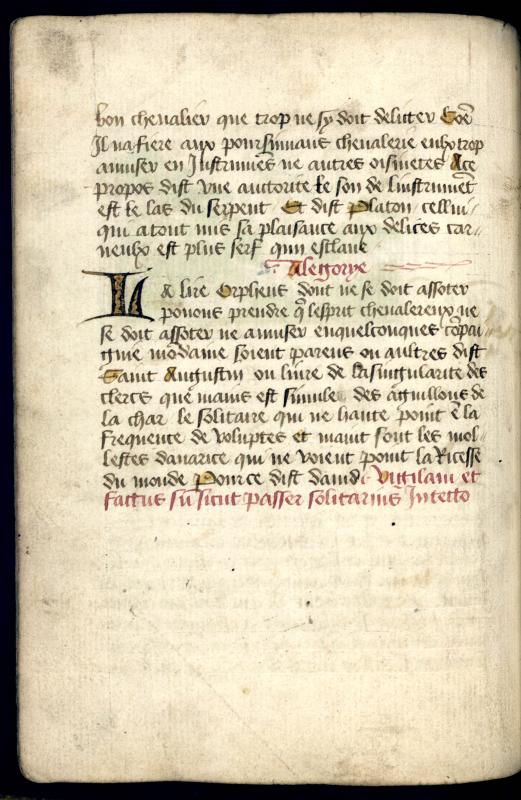 bon chevalier que trop ne sy doit deliter Coe
Il nafiere aux poursiuvans chevalerie eulx trop
amuser en Instrumens ne autres oisivetes A ce
propos dist une auctorite le son de linstrumet
est le las du serpent Et dist Platon cellui
qui a tout mis sa plaisance aux delices car
neulx est plus serf quun esclave
Alegorye
La lire Orpheus dont ne se doit assoter
povons prendre q lesprit chevalereux ne
se doit assoter ne amuser en quelconques copai
gnie modaine soient parens ou aultres dist
Saint Augustin ou livre de la singularite des
clercs que mains est simule des aguillons de
la char le solitaire qui ne hante point e la
frequence de voluptes et maint sont les mol
lestes davarice qui ne voient point la Ricesse
du monde Pource dist david Vigilavi et
factus su sicut passer solitarius In tecto